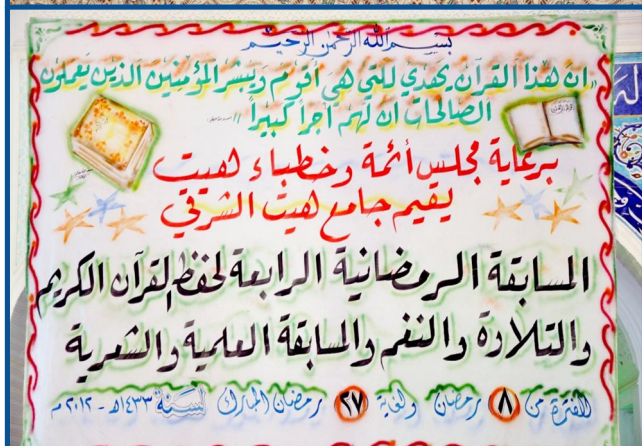 بسم الله الرحمن الرحيم
«ان هذا القرآن يهدي للتي هي أقوم ويبشر المؤمنين الذين يعملون
الصالحات ان لهم أجراً كبيراً»
برعاية مجلس أئمة وخطباء هيت
يقيم جامع هيت الشرقي
المسابقة الرمضانية الرابعة لحفظ القرآن الكريم
والتلاوة والنغم والمسابقة العلمية والشعرية
للفترة من ٨ رمضان ولغاية ٢٧ رمضان المبارك لسنة ١٤٣٣هـ - ٢٠١٢م